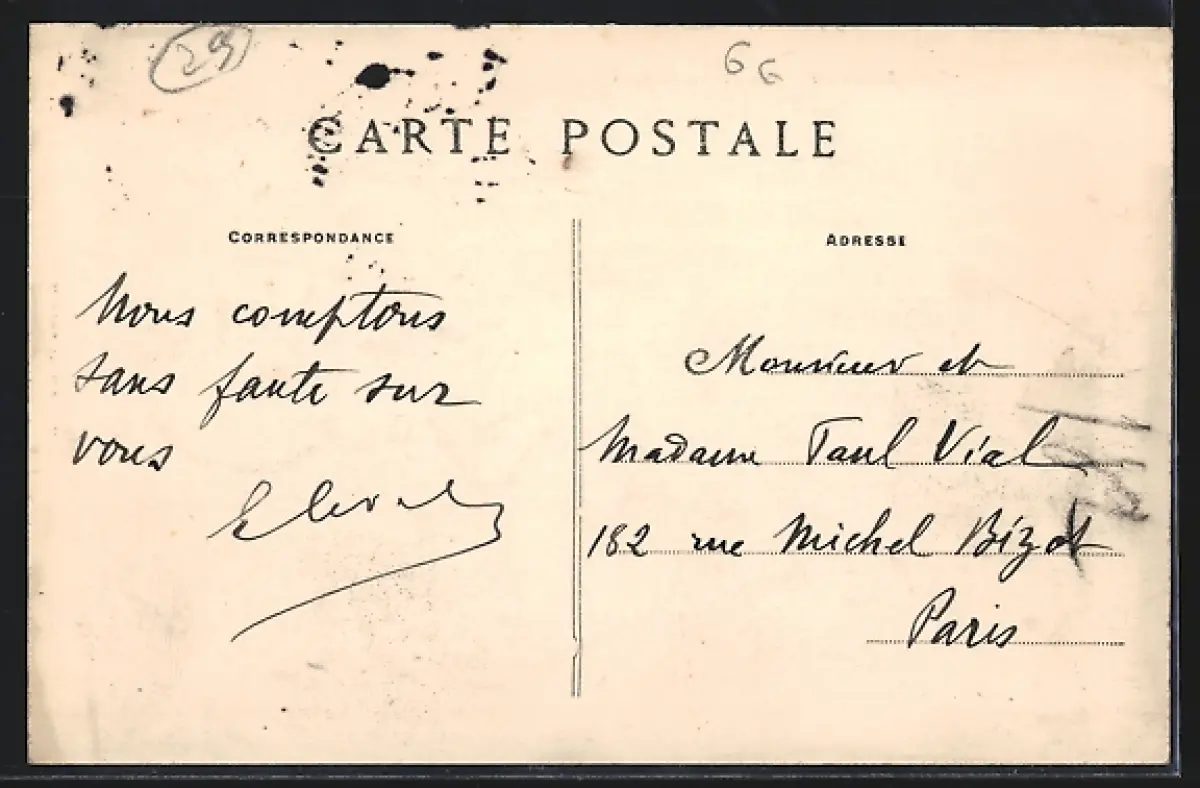 29
6 6
CARTE POSTALE
CORRESPONDANCE
Nous comptons
sans faute sur
vous
ADRESSE
Monsieur et
Madame Paul Vial
182 rue Michel Bizot
Paris